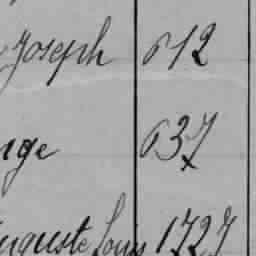 Joseph 612
nge 637
Auguste Louis 1727